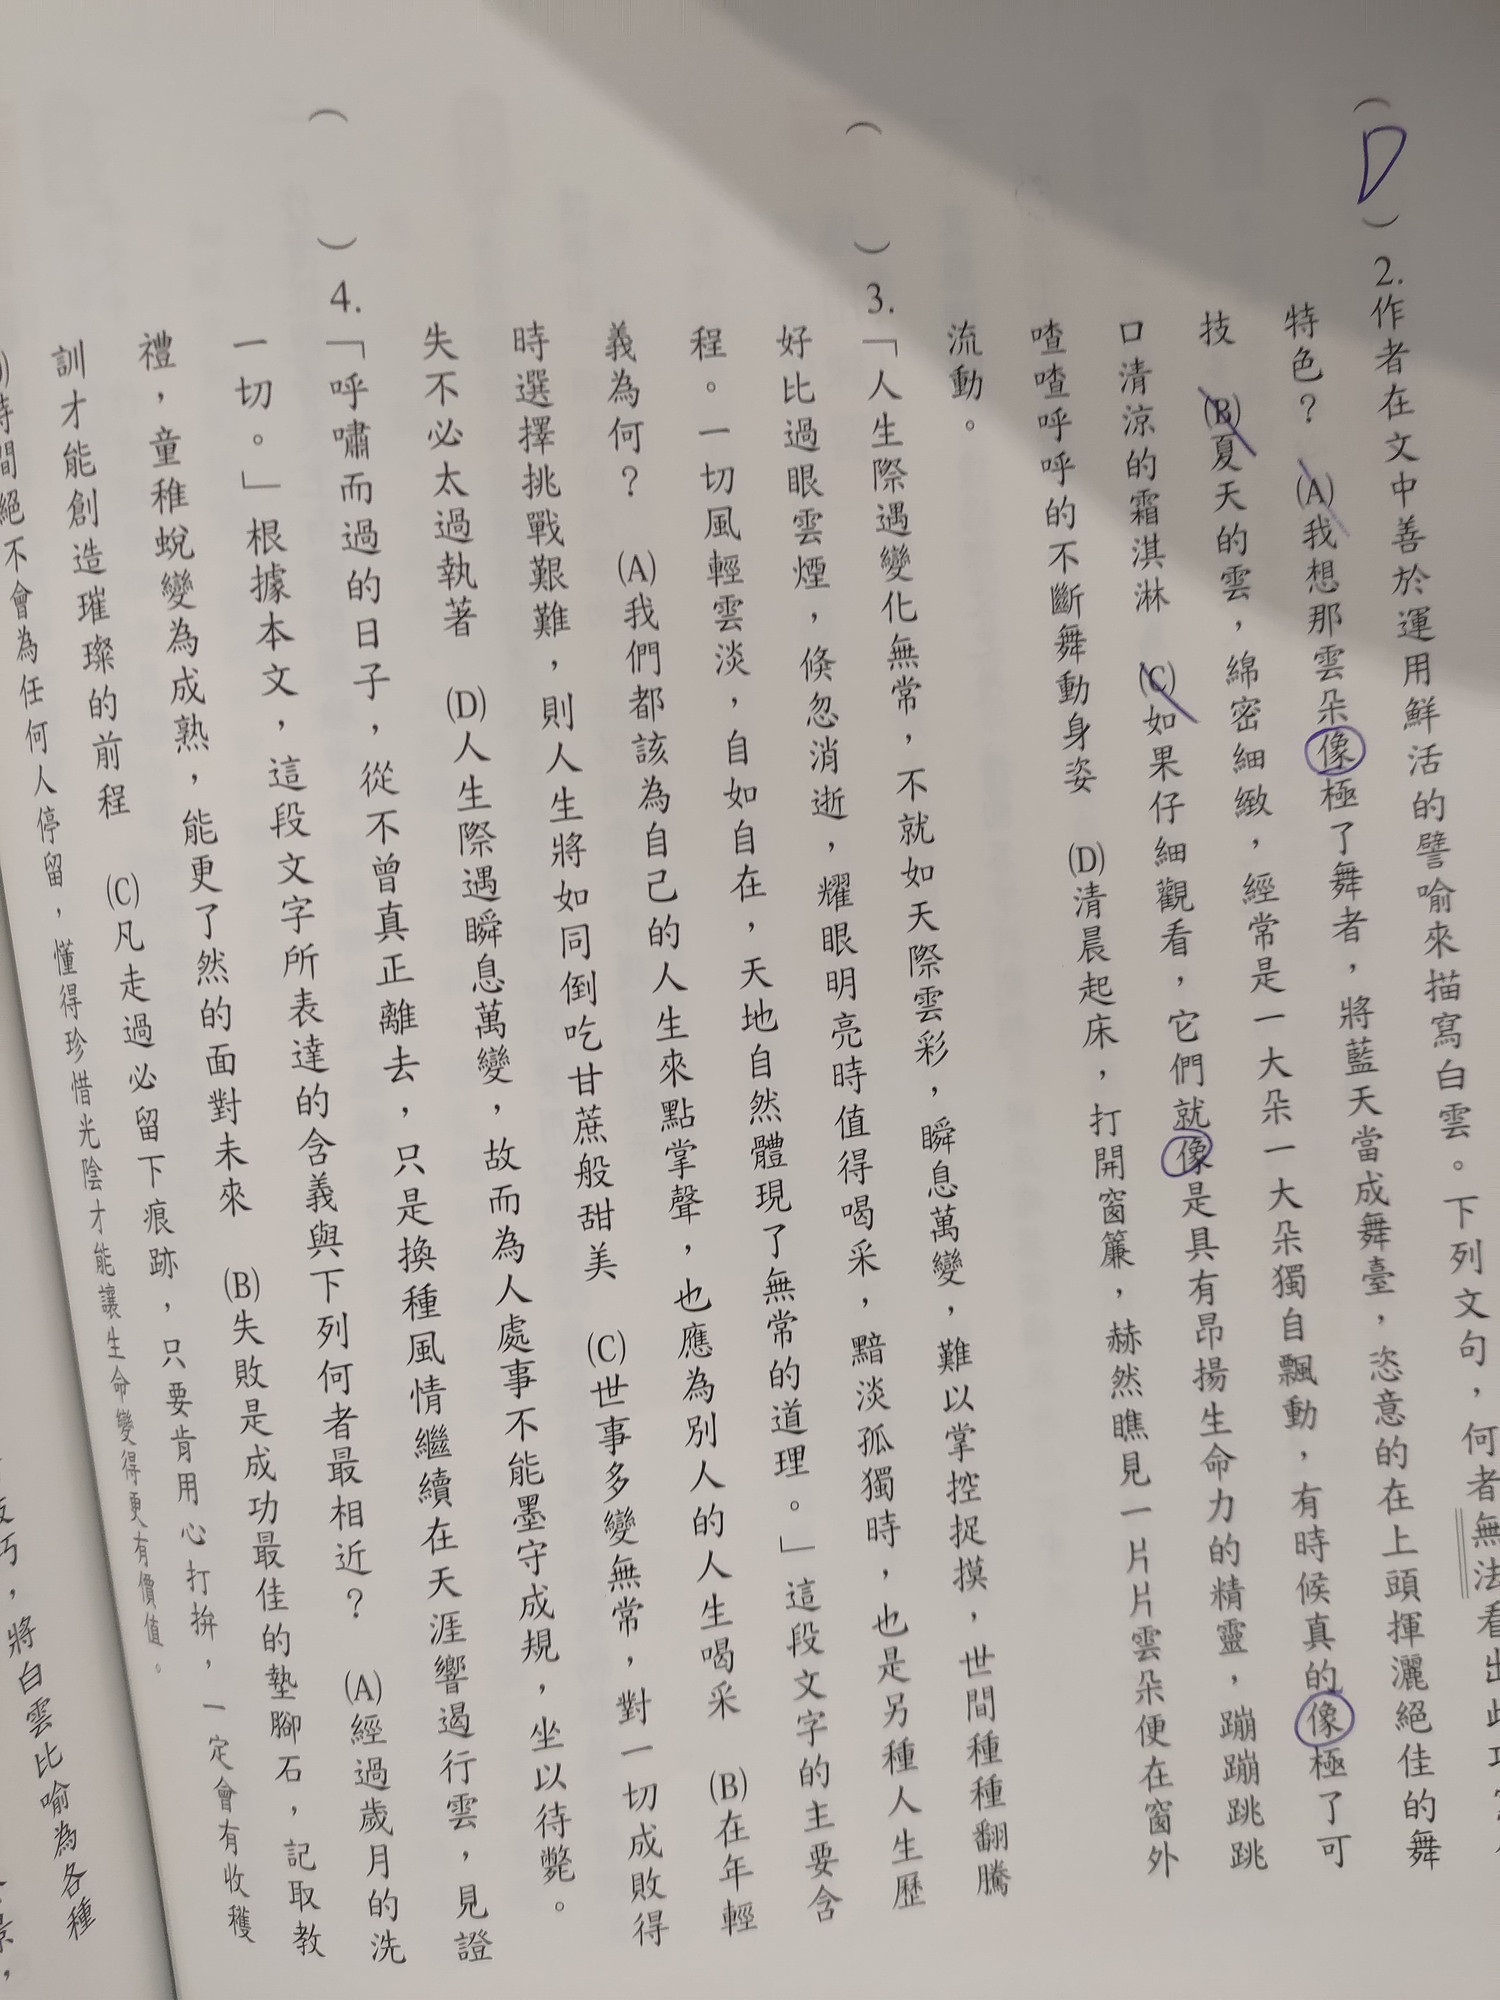 ( D ) 2.作者在文中善於運用鮮活的譬喻來描寫白雲。下列文句,何者無法看出此
特色? (A)我想那雲朵像極了舞者,將藍天當成舞臺,恣意的在上頭揮灑絕佳的舞
技 (B)夏天的雲,綿密細緻,經常是一大朵一大朵獨自飄動,有時候真的像極了可
口清涼的霜淇淋 (C)如果仔細觀看,它們就像是具有昂揚生命力的精靈,蹦蹦跳跳
喳喳呼呼的不斷舞動身姿 (D)清晨起床,打開窗簾,赫然瞧見一片片雲朵便在窗外
流動。
( ) 3.「人生際遇變化無常,不就如天際雲彩,瞬息萬變,難以掌控捉摸,世間種種翻騰
好比過眼雲煙,倏忽消逝,耀眼明亮時值得喝采,黯淡孤獨時,也是另種人生歷
程。一切風輕雲淡,自如自在,天地自然體現了無常的道理。」這段文字的主要含
義為何? (A)我們都該為自己的人生來點掌聲,也應為別人的人生喝采 (B)在年輕
時選擇挑戰艱難,則人生將如同倒吃甘蔗般甜美 (C)世事多變無常,對一切成敗得
失不必太過執著 (D)人生際遇瞬息萬變,故而為人處事不能墨守成規,坐以待斃。
( ) 4.「呼嘯而過的日子,從不曾真正離去,只是換種風情繼續在天涯響遏行雲,見證
一切。」根據本文,這段文字所表達的含義與下列何者最相近? (A)經過歲月的洗
禮,童稚蛻變為成熟,能更了然的面對未來 (B)失敗是成功最佳的墊腳石,記取教
訓才能創造璀璨的前程 (C)凡走過必留下痕跡,只要肯用心打拚,一定會有收穫
時間絕不會為任何人停留,懂得珍惜光陰才能讓生命變得更有價值。
巧,將白雲比喻為各種